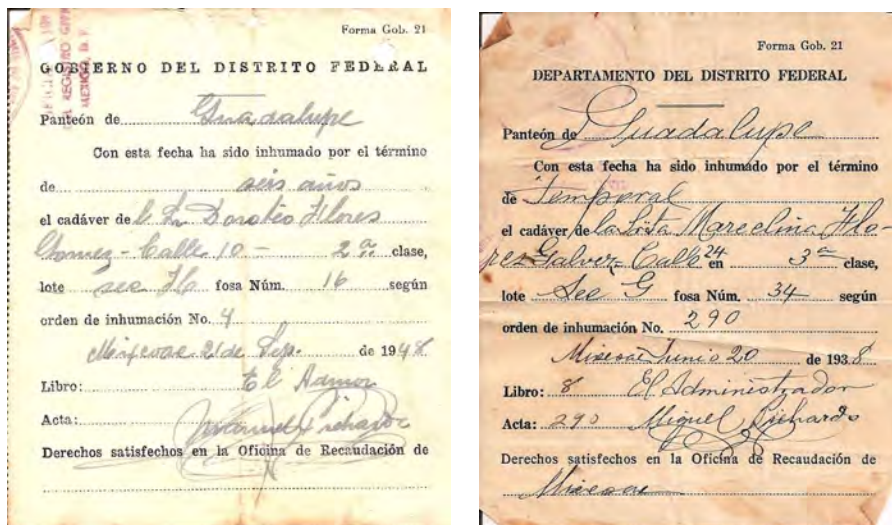 Forma Gob. 21
GOBIERNO DEL DISTRITO FEDERAL
Panteón de Guadalupe
Con esta fecha ha sido inhumado por el término
de seis años
el cadáver de Doroteo Flores
Gomez - Calle 10 - 2a. clase,
lote fosa Núm. 16 según
orden de inhumación No. 4
Mixcoac 21 de Sep. de 1948
Libro: El Admor
Acta: Pichardo
Derechos satisfechos en la Oficina de Recaudación de
Forma Gob. 21
DEPARTAMENTO DEL DISTRITO FEDERAL
Panteón de Guadalupe
Con esta fecha ha sido inhumado por el término
de Temporal
el cadáver de la Srita Marcelina Flo-
res Galvez Calle 24 en 3a clase,
lote Sec G fosa Núm. 34 según
orden de inhumación No. 290
Mixcoac Junio 20 de 1938
Libro: 8 El Administrador
Acta: 290 Miguel Pichardo
Derechos satisfechos en la Oficina de Recaudación de
Mixcoac